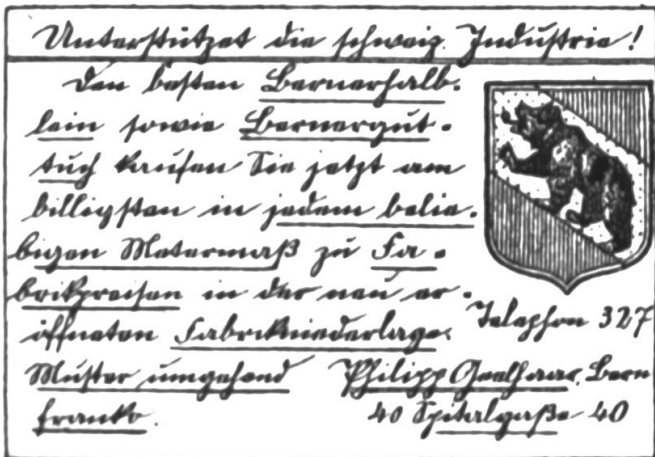 Unterstützet die schweiz. Industrie!
Den besten Bernerhalb-
lein sowie Bernergut-
tuch kaufen Sie jetzt am
billigsten in jedem belie-
bigen Metermaß zu Fa-
brikpreisen in der neu er-
öffneten Fabrikniederlage.
Telephon 327
Muster umgehend
franko.
Philipp Geelhaar, Bern
40 Spitalgaße 40